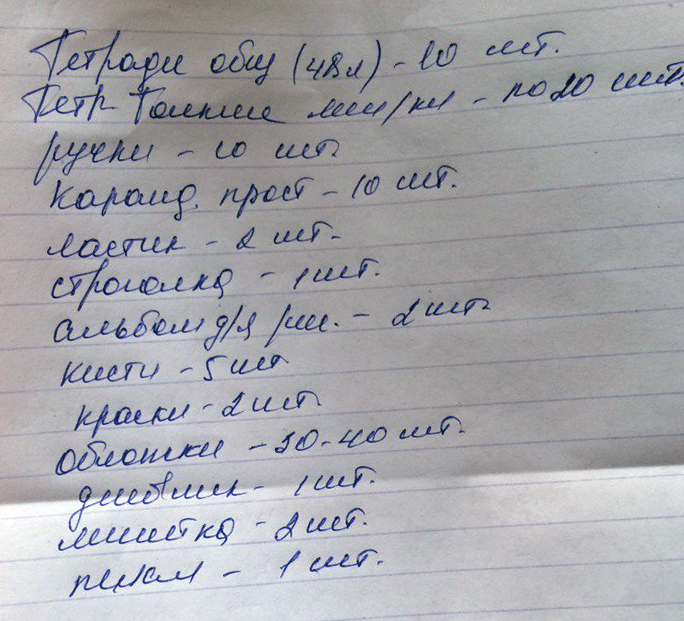 Тетради общ (48л) - 10 шт.
Тетр тонкие лин/кл - по 20 шт.
ручки - 10 шт
каранд. прост - 10 шт.
ластик - 2 шт.
строгалка - 1 шт.
альбом д/я рис. - 2 шт
кисти - 5 шт
краски - 2 шт.
обложки - 30-40 шт.
дневник - 1 шт.
линейка - 2 шт.
пенал - 1 шт.